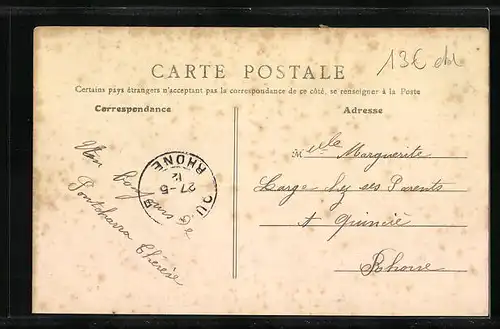 13€
CARTE POSTALE
Certains pays étrangers n'acceptant pas la correspondance de ce côté, se renseigner à la Poste
Correspondance
Adresse
M elle Marguerite
Large
ses Parents
à Quincié
Rhône
RHONE
27-5
12
Un bonjour de
Pontcharra Thérèse